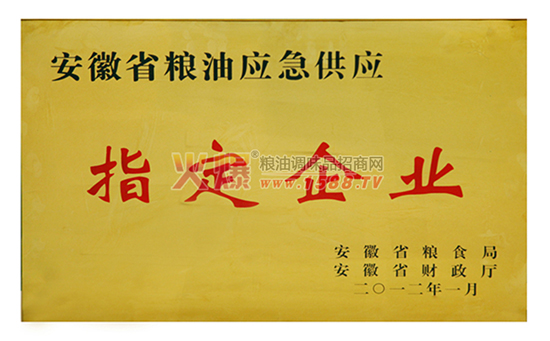 安徽省粮油应急供应
指定企业
火爆®粮油调味品招商网
www.1588.TV
安徽省粮食局
安徽省财政厅
二〇一二年一月